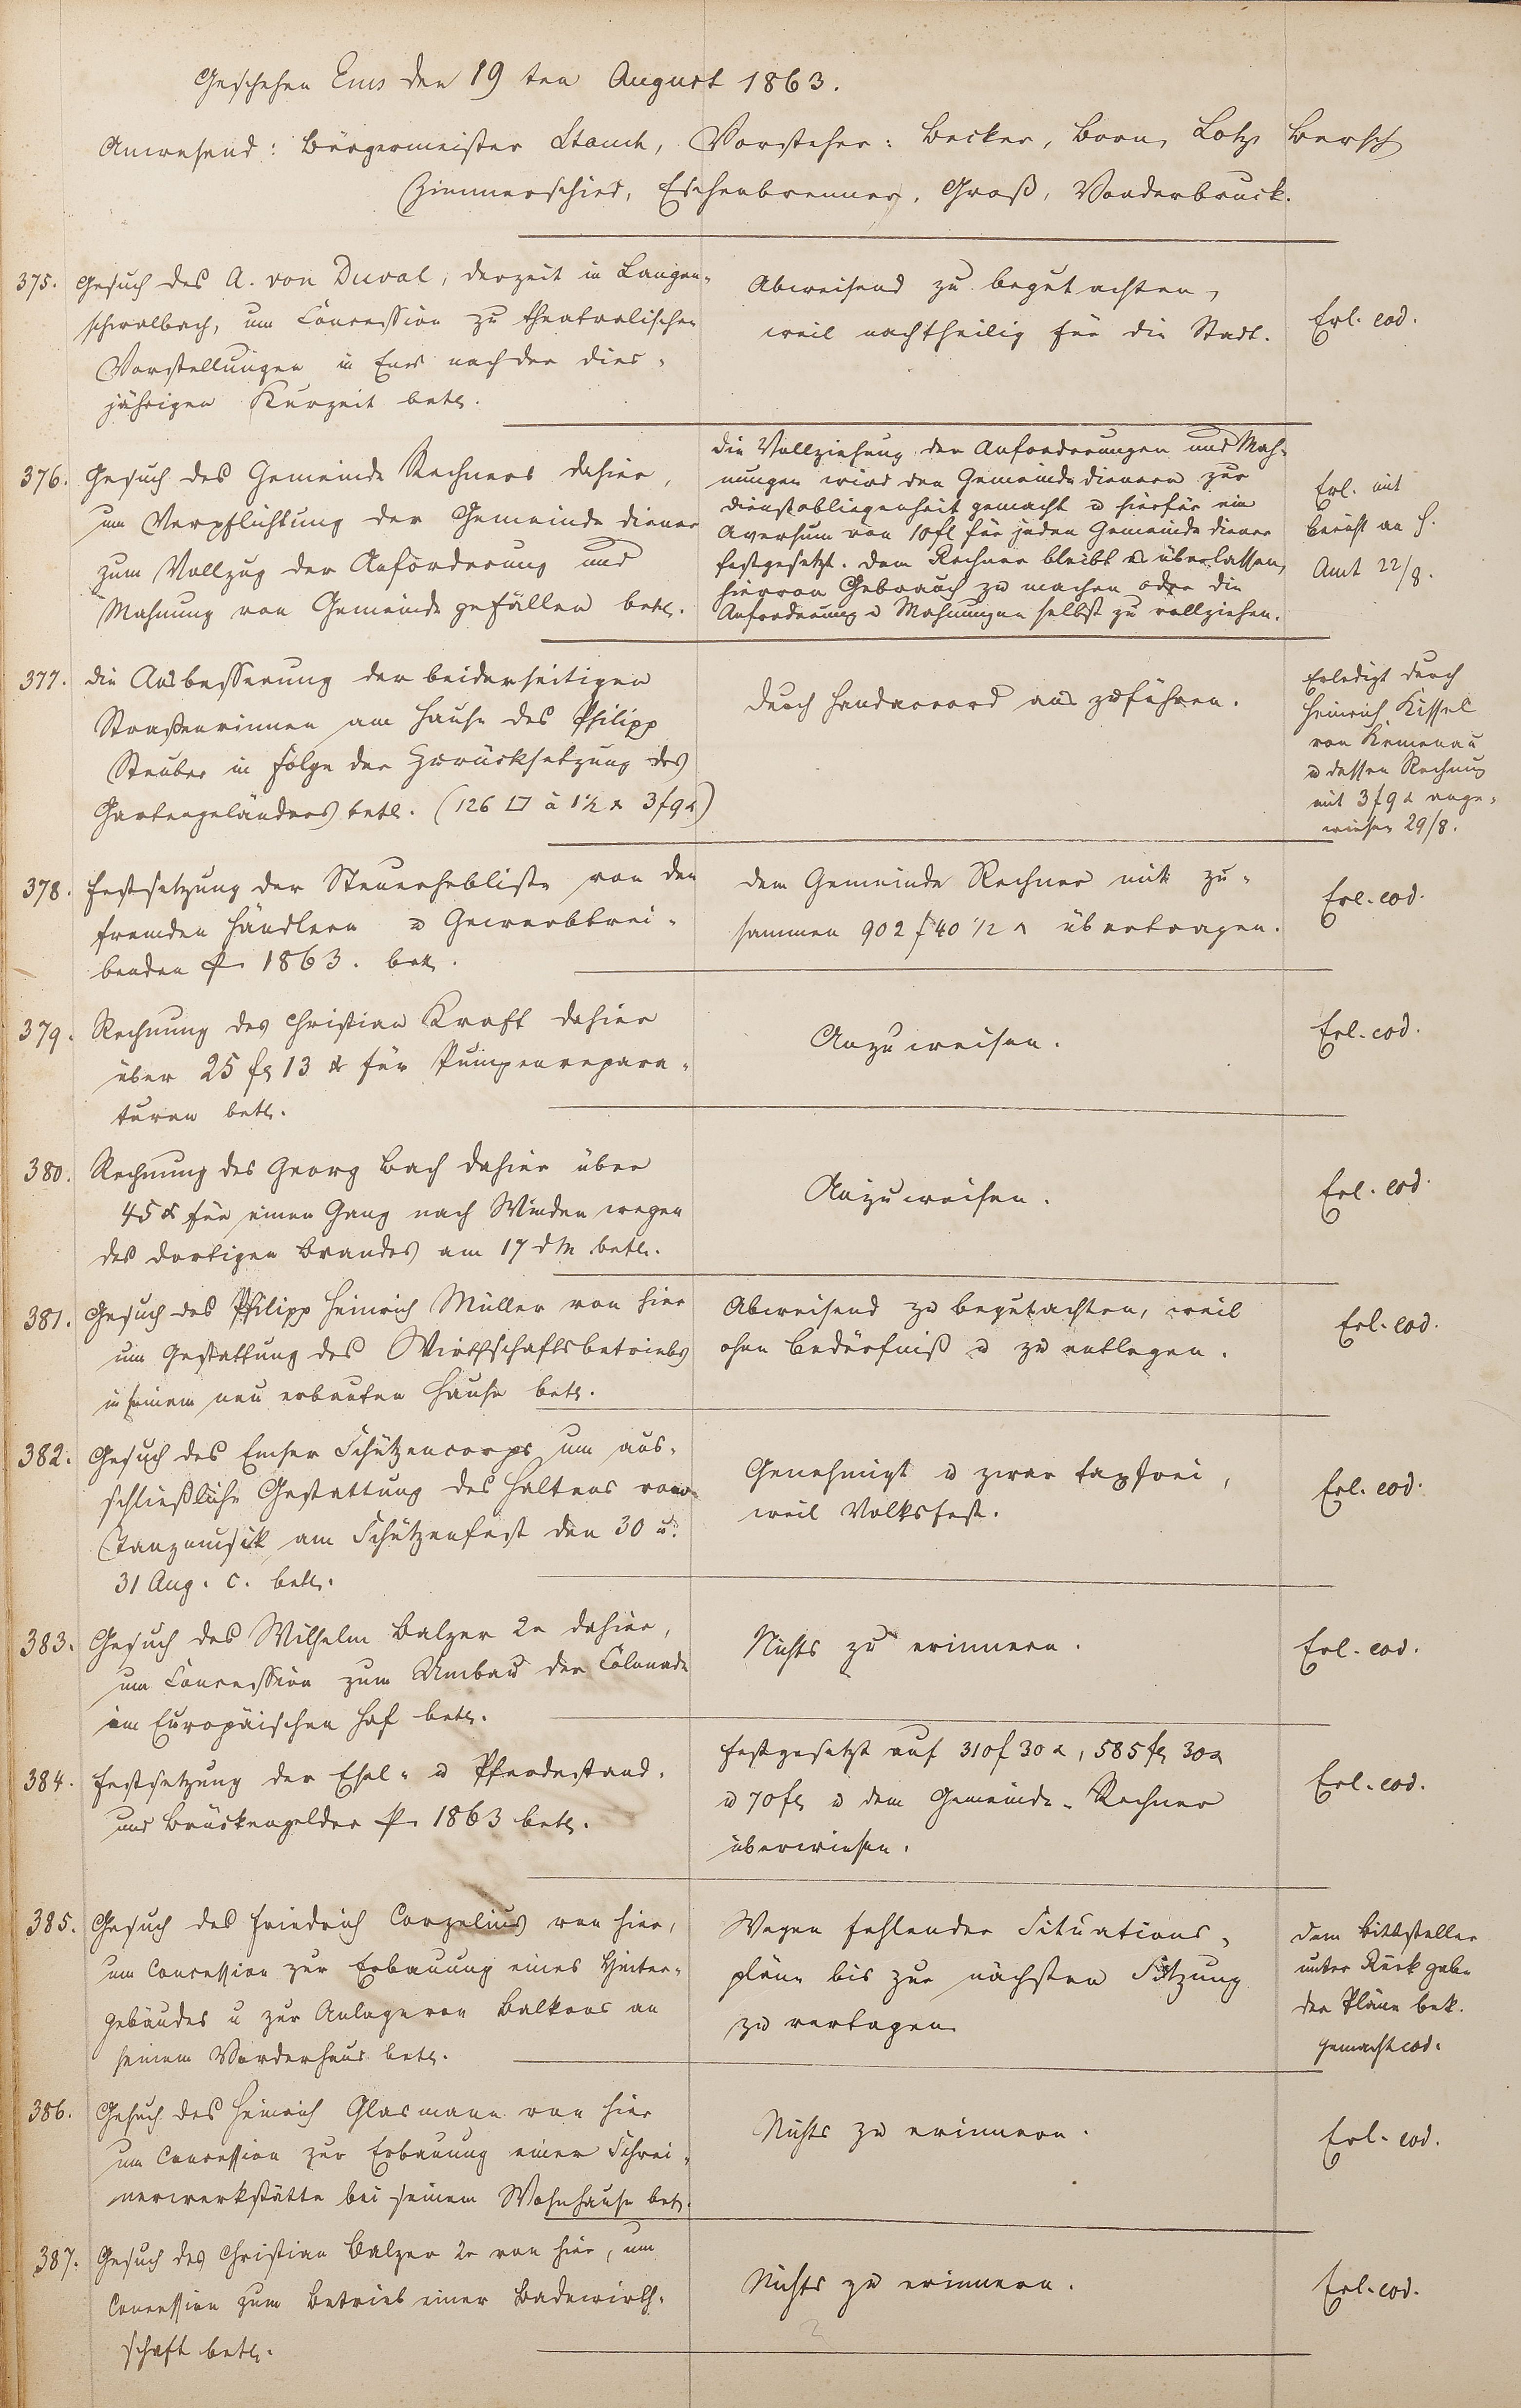 Geschehen Ems den 19 ten August 1863.
Anwesend: Bürgermeister Stauch, Vorsteher: Becker, Born, Lotz, Bersch
Zimmerschied, Eschenbrenner, Groß, Vonderbruck.
375. Gesuch des A. von Duval, derzeit in Langen-
schwalbach, um Concession zu theatralischen
Vorstellungen in Ems nach der dies-
jährigen Kurzeit betr.
Abweisend zu begutachten,
weil nachtheilig für die Stadt.
Erl. eod.
376. Gesuch des Gemeinde Rechners dahier,
um Verpflichtung der Gemeinde diener
zum Vollzug der Anforderung und
Mahnung von Gemeinde gefällen betr.
die Vollziehung der Anforderungen und Mah-
nungen wird den Gemeindedienern zur
Dienstobliegenheit gemacht u hierfür ein
Aversum von 10 fl für jeden Gemeinde diener
festgesetzt. Dem Rechner bleibt es überlassen,
hiervon Gebrauch zu machen oder die
Anforderung u Mahnungen selbst zu vollziehen.
Erl. mit
Bericht an H.
Amt 22/8.
377. die Ausbesserung der beiderseitigen
Straßenrinnen am Hause des Philipp
Steuber in Folge der Zurücksetzung des
Gartengeländers betr. (126 □' à 1½ x 3 f 9 x)
durch Handaccord aus zuführen.
Erledigt durch
Heinrich Kissel
von Kemenau
u dessen Rechnung
mit 3 f 9 x ange-
wiesen 29/8.
378. Festsetzung der Steuerhebliste von den
fremden Händlern u Gewerbtrei-
benden p 1863. betr.
dem Gemeinde Rechner mit zu-
sammen 902 f 40 1/2 x übertragen.
Erl. eod.
379. Rechnung des Christian Kraft dahier
über 25 fl 13 x für Pumpenrepara-
turen betr.
Anzuweisen.
Erl. eod.
380. Rechnung des Georg Bach dahier über
45 x für einen Gang nach Winden wegen
des dortigen Brandes am 17 d M betr.
Anzuweisen.
Erl. eod.
381. Gesuch des Philipp Heinrich Müller von hier
um Gestattung des Wirthschaftsbetriebs
in seinem neu erbauten Hause betr.
Abweisend zu begutachten, weil
ohne Bedürfniß u zu entlegen.
Erl. eod.
382. Gesuch des Emser Schützencorps um aus-
schließliche Gestattung des Haltens von
Tanzmusik am Schützenfest den 30 u.
31 Aug. c. betr.
Genehmigt u zwar taxfrei,
weil Volksfest.
Erl. eod.
383. Gesuch des Wilhelm Balzer 2r dahier,
um Concession zum Umbau der Colonade
im Europäischen Hof betr.
Nichts zu erinnern.
Erl. eod.
384. Festsetzung der Esel- u Pferdestand-
und Brückengelder p 1863 betr.
festgesetzt auf 310 f 30 x, 585 fl 30 x
u 70 fl u dem Gemeinde-Rechner
überwiesen.
Erl. eod.
385. Gesuch des Friedrich Corzelius von hier,
um Concession zur Erbauung eines Hinter-
gebäudes u zur Anlage von Balkons an
seinem Vorderhaus betr.
Wegen fehlender Situations-
pläne bis zur nächsten Sitzung
zu vertagen
dem Bittsteller
unter Rückgabe
der Pläne bek.
gemacht eod.
386. Gesuch des Heinrich Glasmann von hier
um Concession zur Erbauung einer Schrei-
nerwerkstätte bei seinem Wohnhause betr.
Nichts zu erinnern.
Erl. eod.
387. Gesuch des Christian Balzer 2r von hier, um
Concession zum Betrieb einer Badewirth-
schaft betr.
Nichts zu erinnern.
Erl. eod.